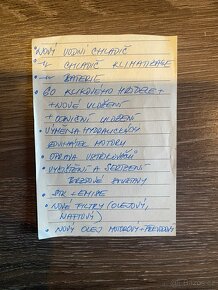 NOVÝ VODNÍ CHLADIČ
CHLADIČ KLIMATIZACE
BATERIE
GO KLIKOVÉHO HŘÍDELE +
+ NOVÉ ULOŽENÍ
+ OJNIČNÍ ULOŽENÍ
VÝMĚNA HYDRAULICKÝCH
ZDVIHÁTEK MOTORU
OPRAVA VSTŘIKOVAČŮ
VYČIŠTĚNÍ A SEŘÍZENÍ
BRZDOVÉ SOUSTAVY
STK + EMISE
NOVÉ FILTRY (OLEJOVÝ,
NAFTOVÝ)
NOVÝ OLEJ MOTOROVÝ + PŘEVODOVÝ